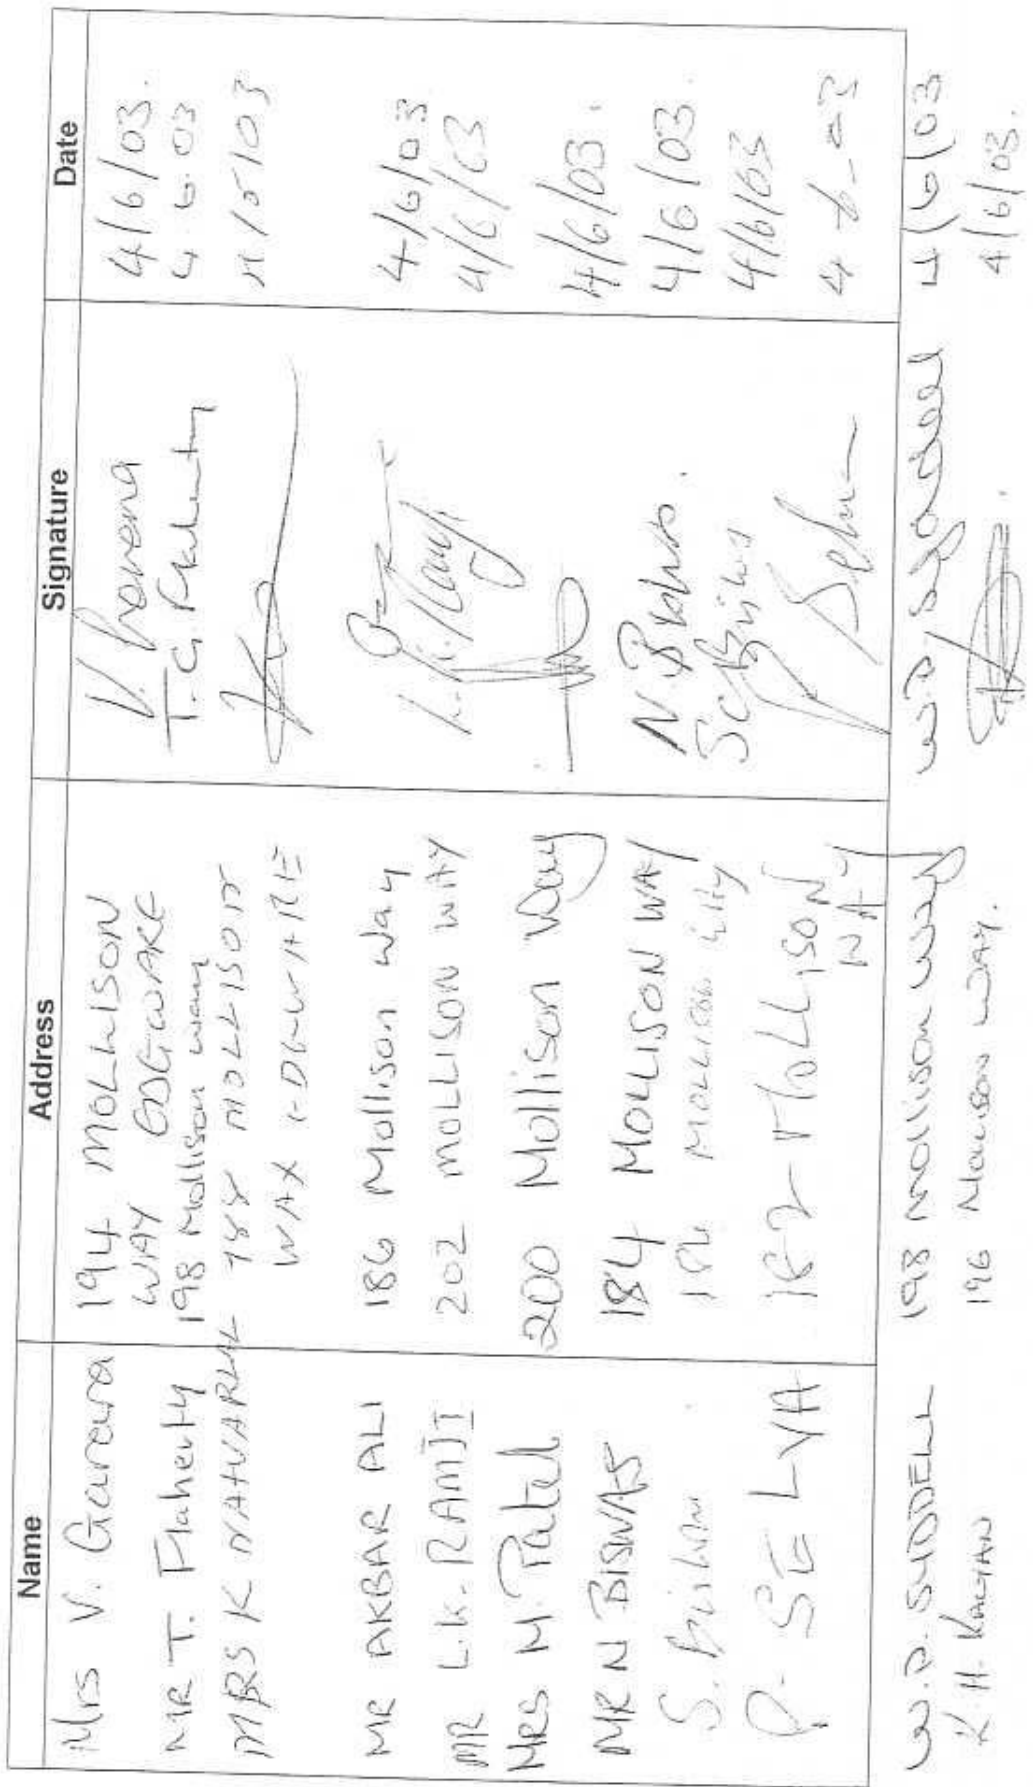 Name Address Signature Date
Mrs V. Garara 194 MOLLISON V. 4/6/03.
WAY EDGWARE
MR T. Flaherty 198 Mollison way T. G. Flaherty 4.6.03
MRS K NATVARLAL 188 MOLLISON 4/5/03
WAY EDGWARE
MR AKBAR ALI 186 Mollison Way 4/6/03
MR L.K. RAMJI 202 MOLLISON WAY L.K. Ramji 4/6/03
MRS M. Patel 200 Mollison Way 4/6/03.
MR N BISWAS 184 MOLLISON WAY N. Biswas. 4/6/03.
S. 184 MOLLISON WAY 4/6/03
P. SELVA 182 MOLLISON 4-6-03
WAY
W.D. SYDDELL 198 Mollison Way W.D. Syddell 4/6/03
K H. 196 Mollison WAY. 4/6/03.